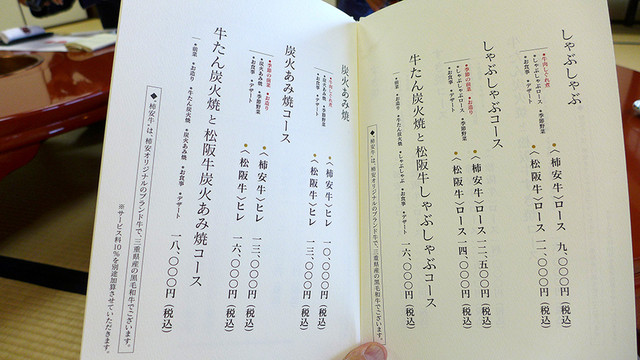 しゃぶしゃぶ
●牛肉しぐれ煮
●しゃぶしゃぶロース ●季節野菜
●お食事 ●デザート
●〈柿安牛〉ロース 九、〇〇〇円(税込)
●〈松阪牛〉ロース 一一、〇〇〇円(税込)
しゃぶしゃぶコース
●季節の前菜 ●お造り
●しゃぶしゃぶロース ●季節野菜
●お食事 ●デザート
●〈柿安牛〉ロース 一二、五〇〇円(税込)
●〈松阪牛〉ロース 一四、〇〇〇円(税込)
牛たん炭火焼と松阪牛しゃぶしゃぶコース
●前菜 ●お造り ●牛たん炭火焼 ●しゃぶしゃぶ ●お食事 ●デザート
一六、〇〇〇円(税込)
◆「柿安牛」は、柿安オリジナルのブランド牛で、三重県産の黒毛和牛でございます。
炭火あみ焼
●牛肉しぐれ煮
●炭火あみ焼 ●季節野菜
●お食事 ●デザート
●〈柿安牛〉ヒレ 一〇、〇〇〇円(税込)
●〈松阪牛〉ヒレ 一三、〇〇〇円(税込)
炭火あみ焼コース
●季節の前菜 ●お造り
●炭火あみ焼 ●季節野菜
●お食事 ●デザート
●〈柿安牛〉ヒレ 一三、〇〇〇円(税込)
●〈松阪牛〉ヒレ 一六、〇〇〇円(税込)
牛たん炭火焼と松阪牛炭火あみ焼コース
●前菜 ●お造り ●牛たん炭火焼 ●炭火あみ焼 ●お食事 ●デザート
一八、〇〇〇円(税込)
◆「柿安牛」は、柿安オリジナルのブランド牛で、三重県産の黒毛和牛でございます。
※サービス料10%を別途加算させていただきます。